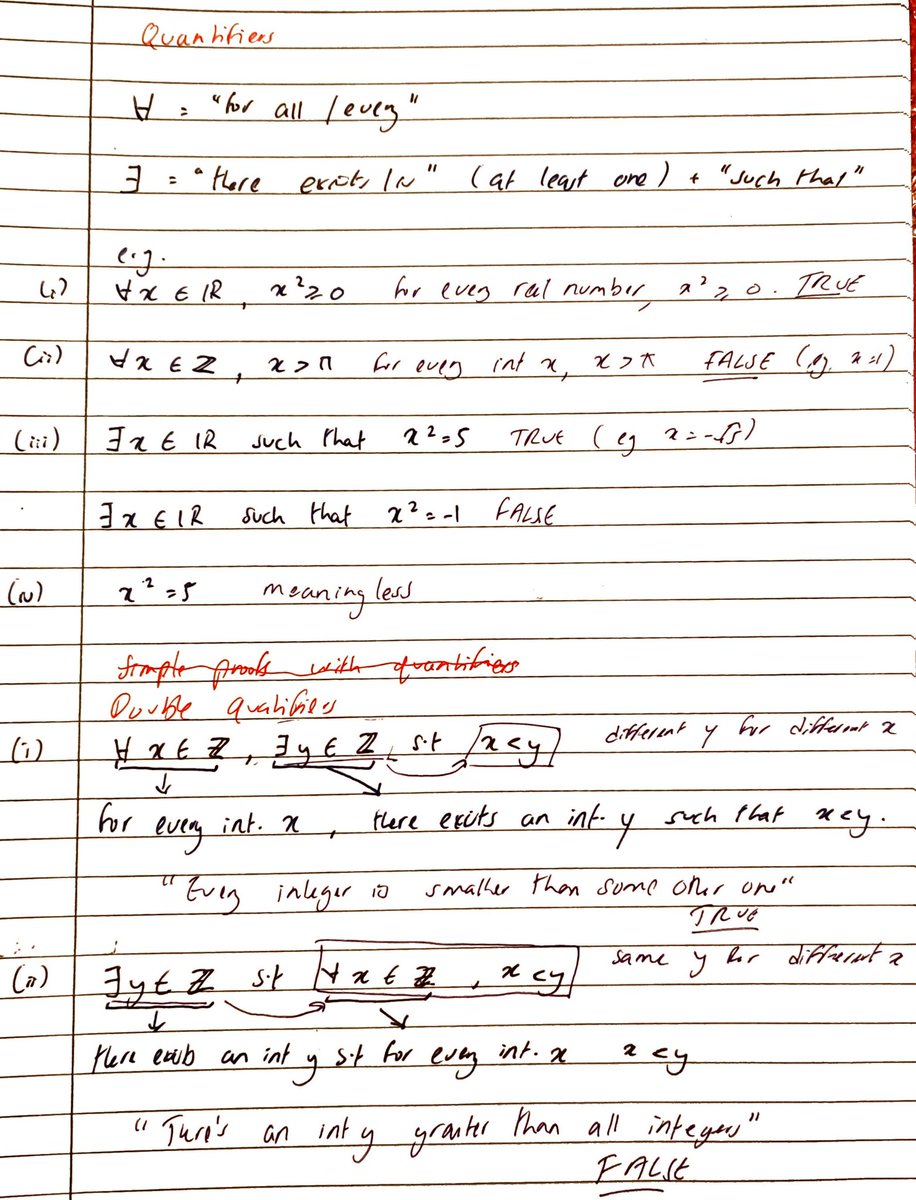 Quantifiers
∀ = "for all / every"
∃ = "there exists / is" (at least one) + "such that"
e.g.
(i) ∀x ∈ ℝ, x² ≥ 0 for every real number, x² ≥ 0. TRUE
(ii) ∀x ∈ ℤ, x > π for every int x, x > π FALSE (eg. x=1)
(iii) ∃x ∈ ℝ such that x² = 5 TRUE (eg x = -√5)
∃x ∈ ℝ such that x² = -1 FALSE
(iv) x² = 5 meaningless
Simple proofs with quantifiers
Double quatifiers
(i) ∀ x ∈ ℤ, ∃y ∈ ℤ s.t x < y different y for different x
for every int. x, there exists an int. y such that x < y.
"Every integer is smaller than some other one"
TRUE
(ii) ∃y ∈ ℤ s.t ∀x ∈ ℤ, x < y same y for different x
there exists an int y s.t for every int. x x < y
"There's an int y greater than all integers"
FALSE